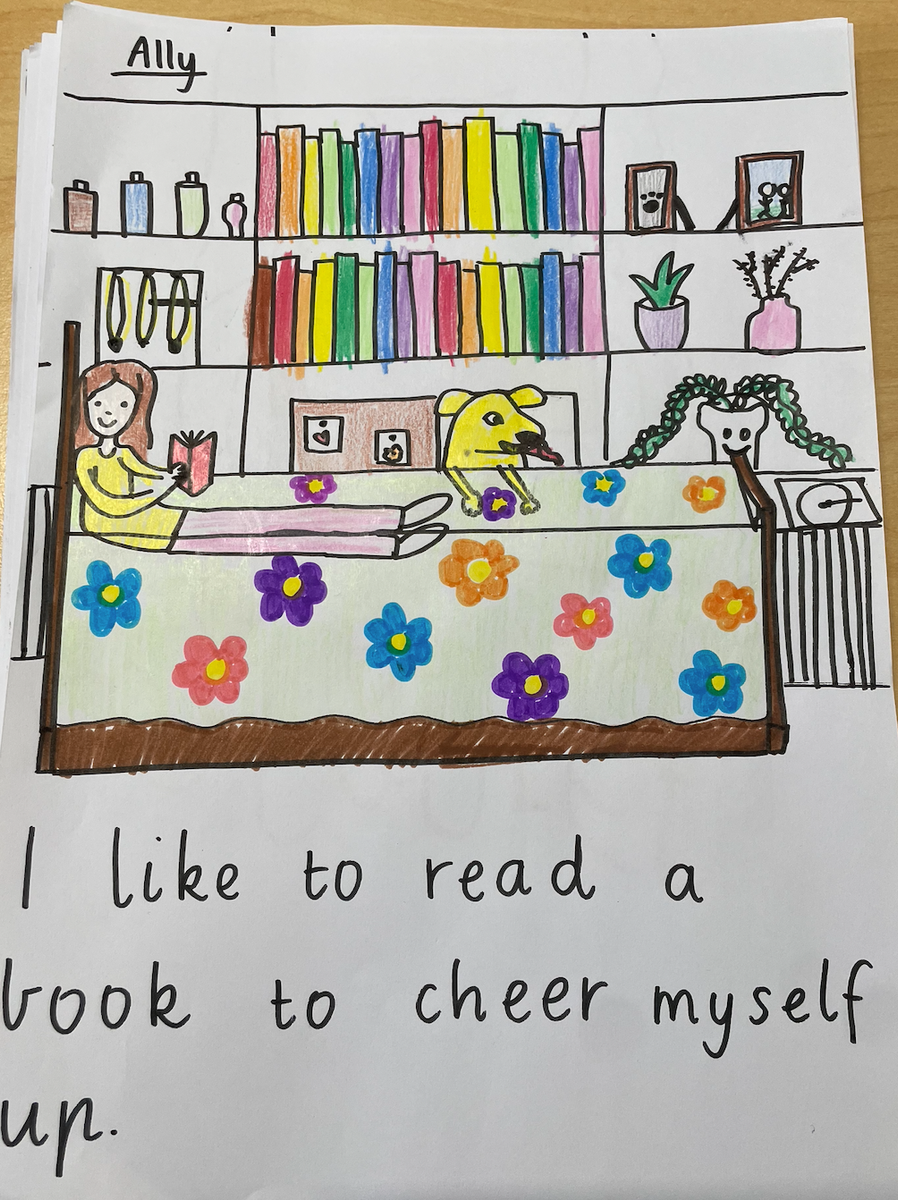 Ally
I like to read a
book to cheer myself
up.